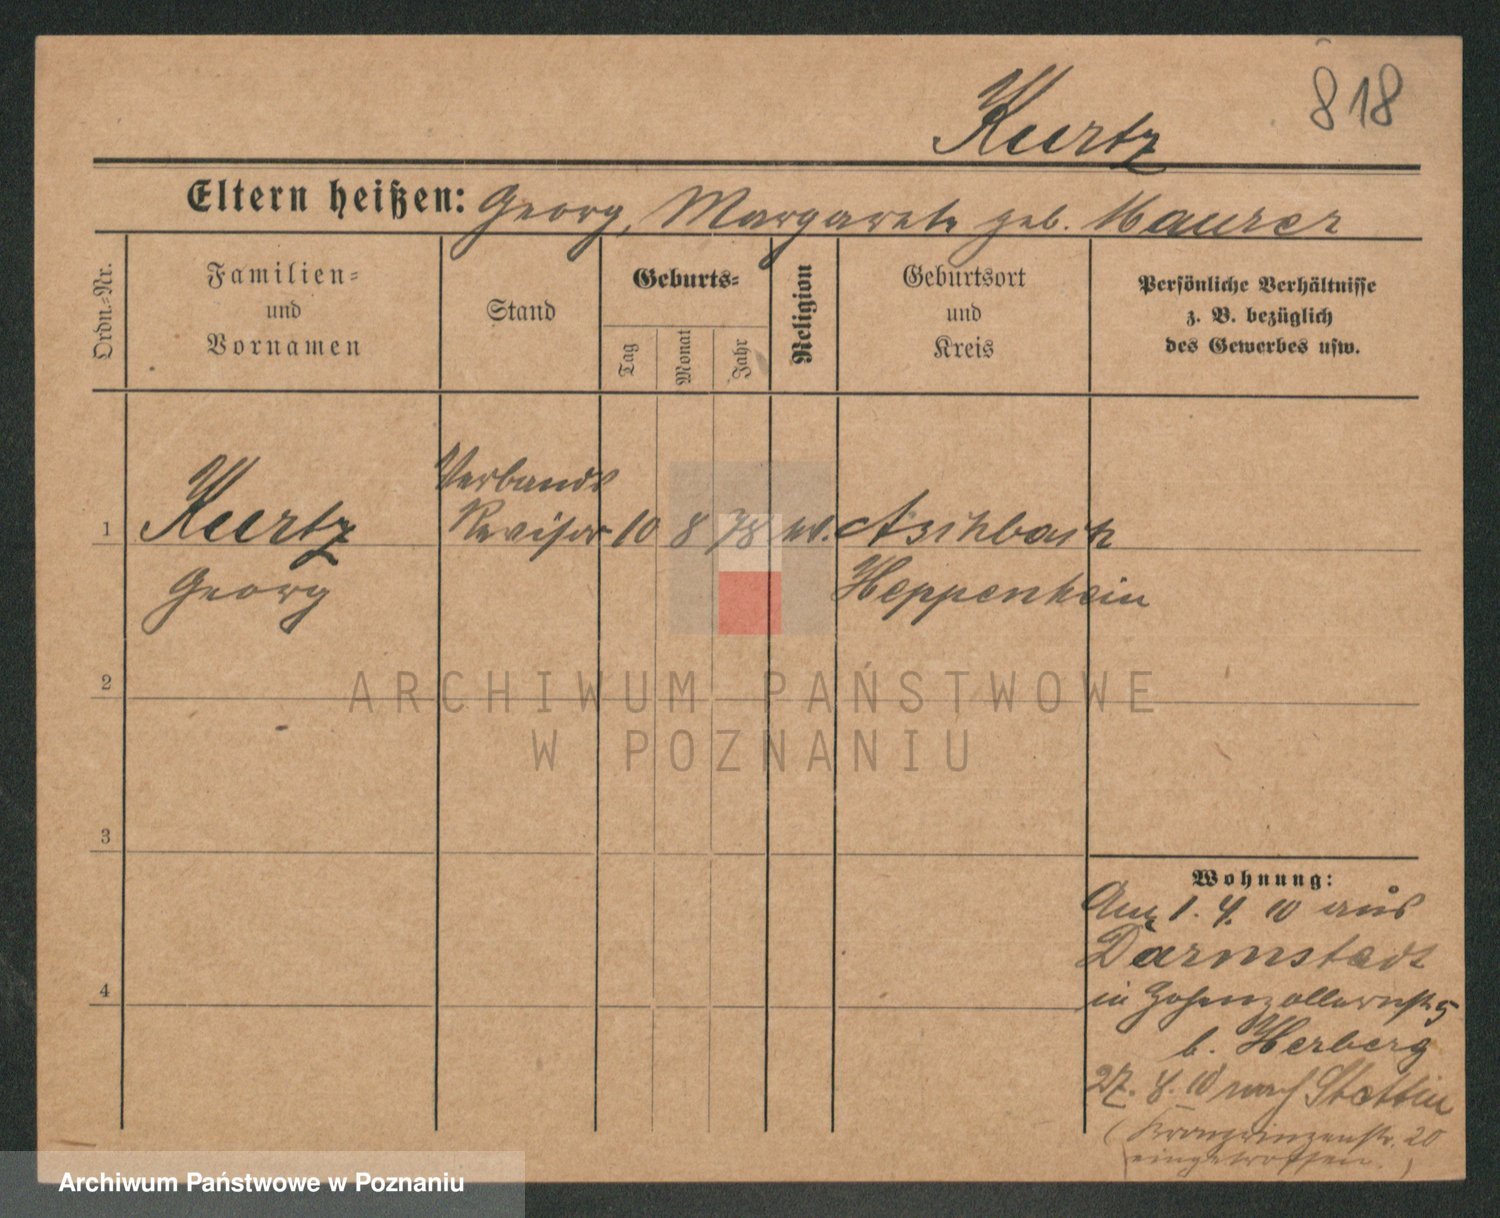 818
Kurtz
Eltern heißen: Georg, Margarete geb. Maurer
Ordn.-Nr.
Familien-
und
Vornamen
Stand
Geburts-
Tag
Monat
Jahr
Religion
Geburtsort
und
Kreis
Persönliche Verhältnisse
z. B. bezüglich
des Gewerbes usw.
Verbands
1 Kurtz Revisor 10 8 78 ev. Aschbach
Georg Heppenheim
2
3
4
Wohnung:
1. 4. 10 aus
Darmstadt
in Hohenzollernstr 5
b. Herberg
27. 8. 10 nach Stettin
(Kronprinzenstr. 20
eingetroffen.)
ARCHIWUM PAŃSTWOWE
W POZNANIU
Archiwum Państwowe w Poznaniu